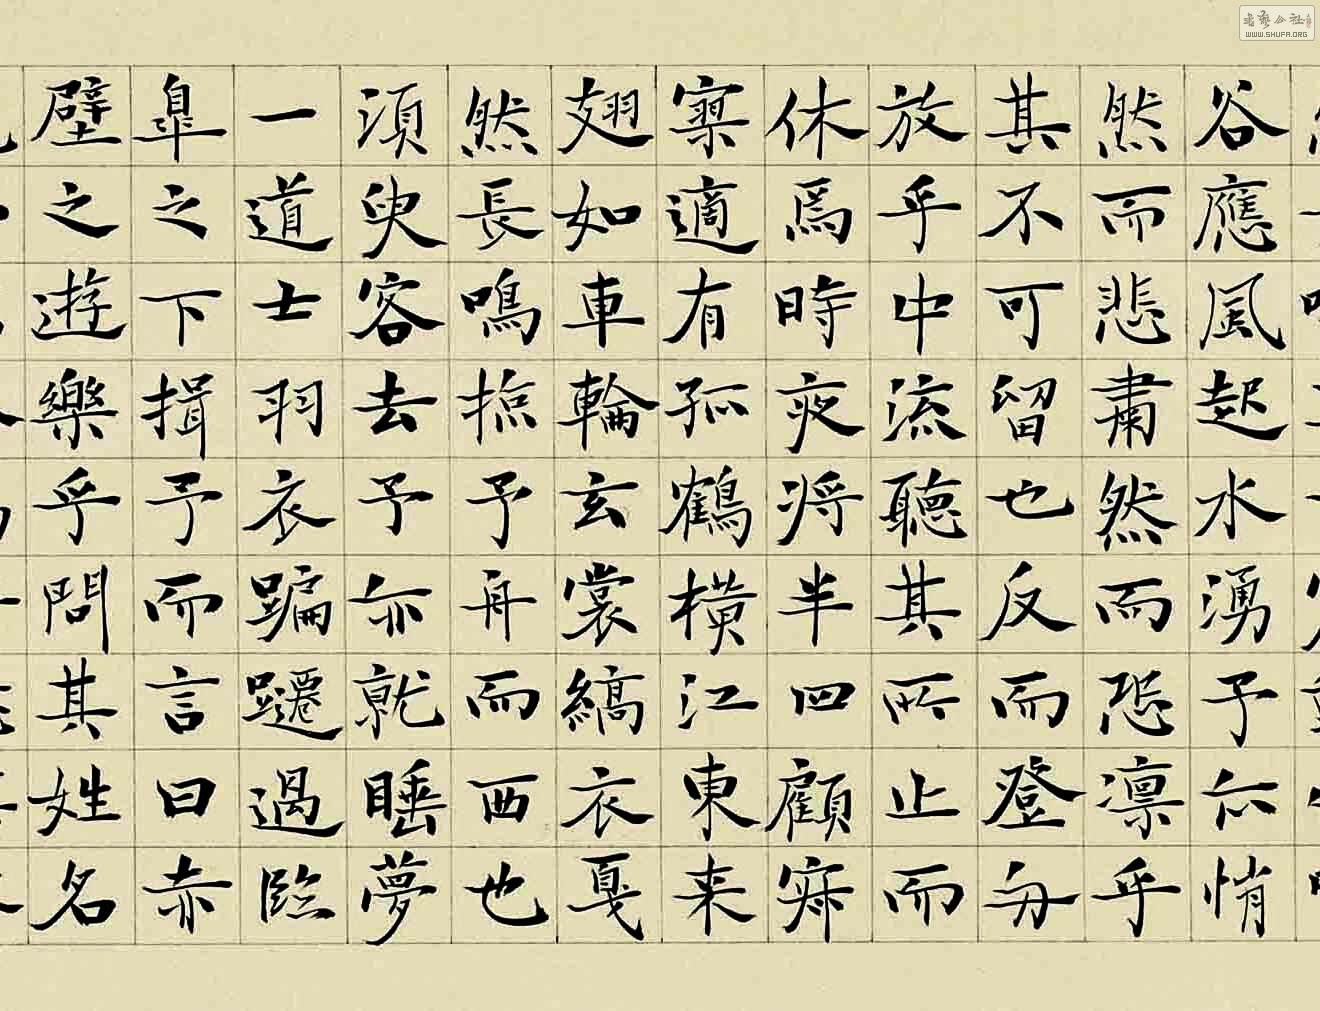 谷應風起水湧予亦悄
然而悲肅然而恐凛乎
其不可留也反而登舟
放乎中流聽其所止而
休焉時夜将半四顧寂
寥適有孤鶴横江東来
翅如車輪玄裳縞衣戛
然長鳴掠予舟而西也
須臾客去予亦就睡夢
一道士羽衣蹁躚過臨
皐之下揖予而言曰赤
壁之遊樂乎問其姓名
书艺公社
WWW.SHUFA.ORG